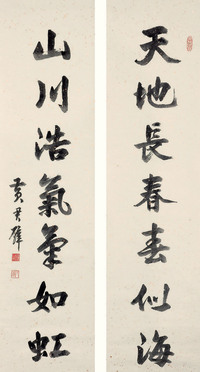 天地長春春似海
山川浩氣氣如虹
黃君璧